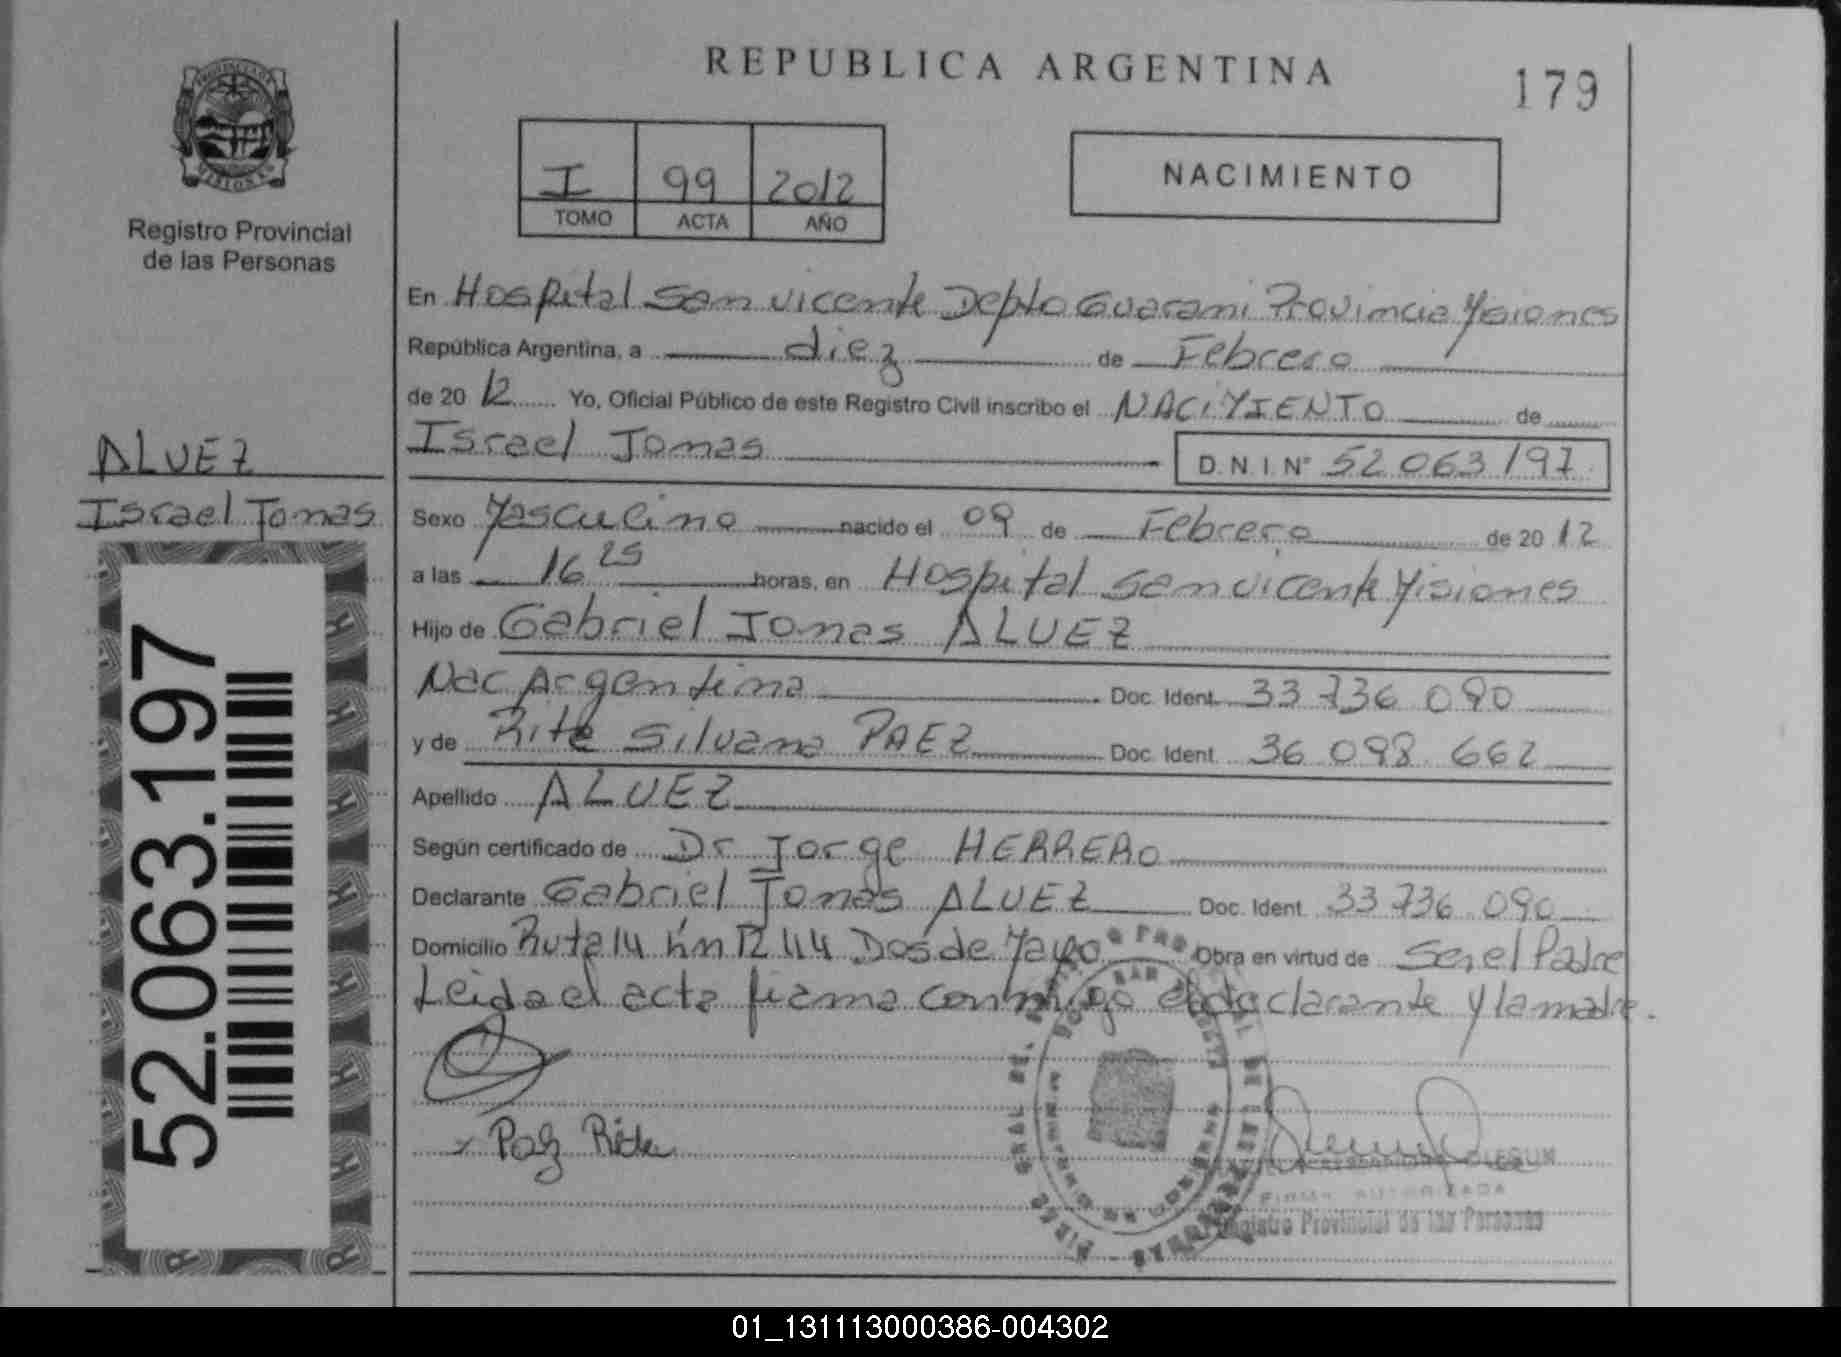 REPUBLICA ARGENTINA
179
PROVINCIA DE
MISIONES
Registro Provincial
de las Personas
I 99 2012
TOMO ACTA AÑO
NACIMIENTO
En Hospital San Vicente Depto Guarani Provincia Misiones
República Argentina, a diez de Febrero
de 2012 Yo, Oficial Público de este Registro Civil inscribo el NACIMIENTO de
Israel Tomas D.N.I. Nº 52 063 197
ALVEZ
Israel Tomas
Sexo Masculino nacido el 09 de Febrero de 2012
a las 16 25 horas, en Hospital San Vicente Misiones
Hijo de Gabriel Tomas ALVEZ
Nac Argentina Doc. Ident. 33 736 090
y de Rita Silvana PAEZ Doc. Ident. 36 098 662
Apellido ALVEZ
Según certificado de Dr Jorge HERRERO
Declarante Gabriel Tomas ALVEZ Doc. Ident. 33 736 090
Domicilio Ruta 14 km Dos de Mayo Obra en virtud de Ser el Padre
Leida el acta firma conmigo el declarante y la madre.
Rita
FIRMA AUTORIZADA
Registro Provincial de las Personas
52.063.197
01_131113000386-004302